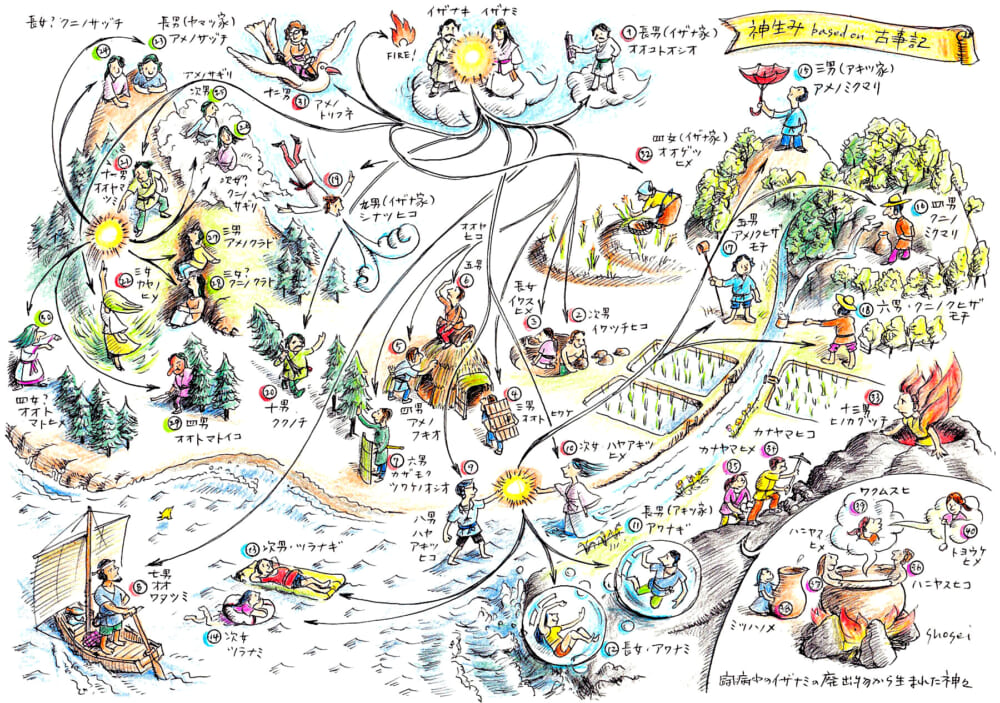 神生み based on 古事記
イザナキ イザナミ
FIRE!
① 長男(イザナ家)
オオコトオシオ
長女? クニノサヅチ
㉔
㉓
長男(ヤマツ家)
アメノサヅチ
アメノサギリ
次男 ㉕
㉖
次女?
クニノ
サギリ
十二男 ㉛ アメノ
トリフネ
⑮ 三男(アキツ家)
アメノミクマリ
四女(イザナ家)
㉜ オオゲツ
ヒメ
㉑
十一男
オオヤマ
ツミ
⑲
九男(イザナ家)
シナツヒコ
⑯ 四男
クニノ
ミクマリ
五男
アメノクヒザ
モチ
⑰
三男 ㉗
アメノクラド
三女? ㉘
クニノクラド
㉒ 三女
カヤノ
ヒメ
オオヤ
ヒコ
五男
⑥
長女
イワス
ヒメ
③
② 次男
イワツチヒコ
⑱ 六男・クニノクヒザ
モチ
㉚
四女?
オオト
マトヒメ
㉙ 四男
オオトマトイコ
⑳ 十男
ククノチ
⑤
四男
アメノ
フキオ
④
三男
オオト
ヒワケ
⑦ 六男
カザモク
ツワケノオシオ
㉝
十三男
ヒノカグツチ
カナヤマヒコ
カナヤマヒメ ㉞
㉟
⑨
八男
ハヤ
アキツ
ヒコ
⑩ 次女 ハヤアキツ
ヒメ
長男(アキツ家)
⑪ アワナギ
⑫ 長女・アワナミ
⑬ 次男・ツラナギ
⑭ 次女
ツラナミ
七男
⑧ オオ
ワタツミ
ワクムスヒ
㊴
㊵
トヨウケ
ヒメ
ハニヤマ
ヒメ
㊲
㊱
ハニヤスヒコ
㊳
ミツハノメ
shosei
闘病中のイザナミの廃出物から生まれた神々